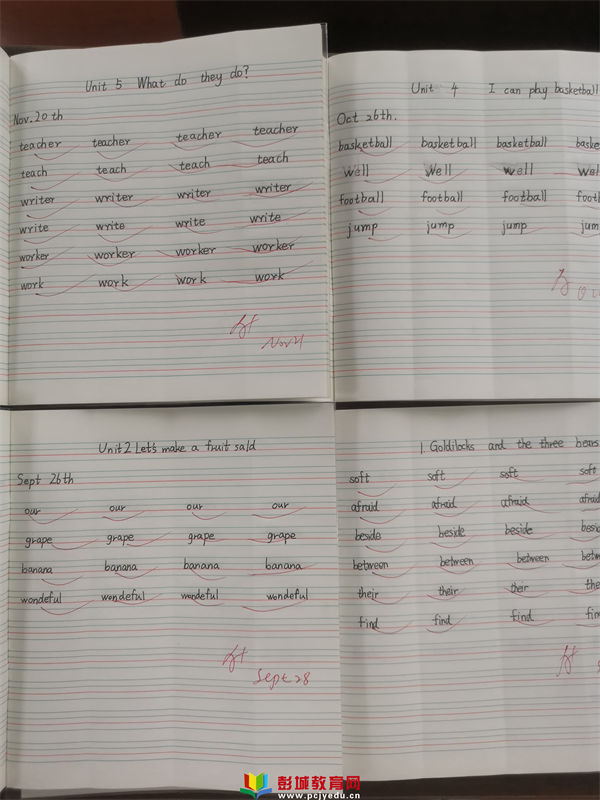 Unit 5 What do they do?
Nov. 20 th
teacher teacher teacher teacher
teach teach teach teach
writer writer writer writer
write write write write
worker worker worker worker
work work work work
Nov 21
Unit 4 I can play basketball
Oct 26th.
basketball basketball basketball baske
well well well well
football football football foot
jump jump jump jum
Unit 2 Let's make a fruit sald
Sept 26th
our our our our
grape grape grape grape
banana banana banana banana
wondeful wondeful wondeful wondeful
Sept 28
1. Goldilocks and the three bears
soft soft soft soft
afraid afraid afraid afraid
beside beside beside besid
between between between betw
their their their the
find find find find
彭城教育网
www.pcjyedu.cn